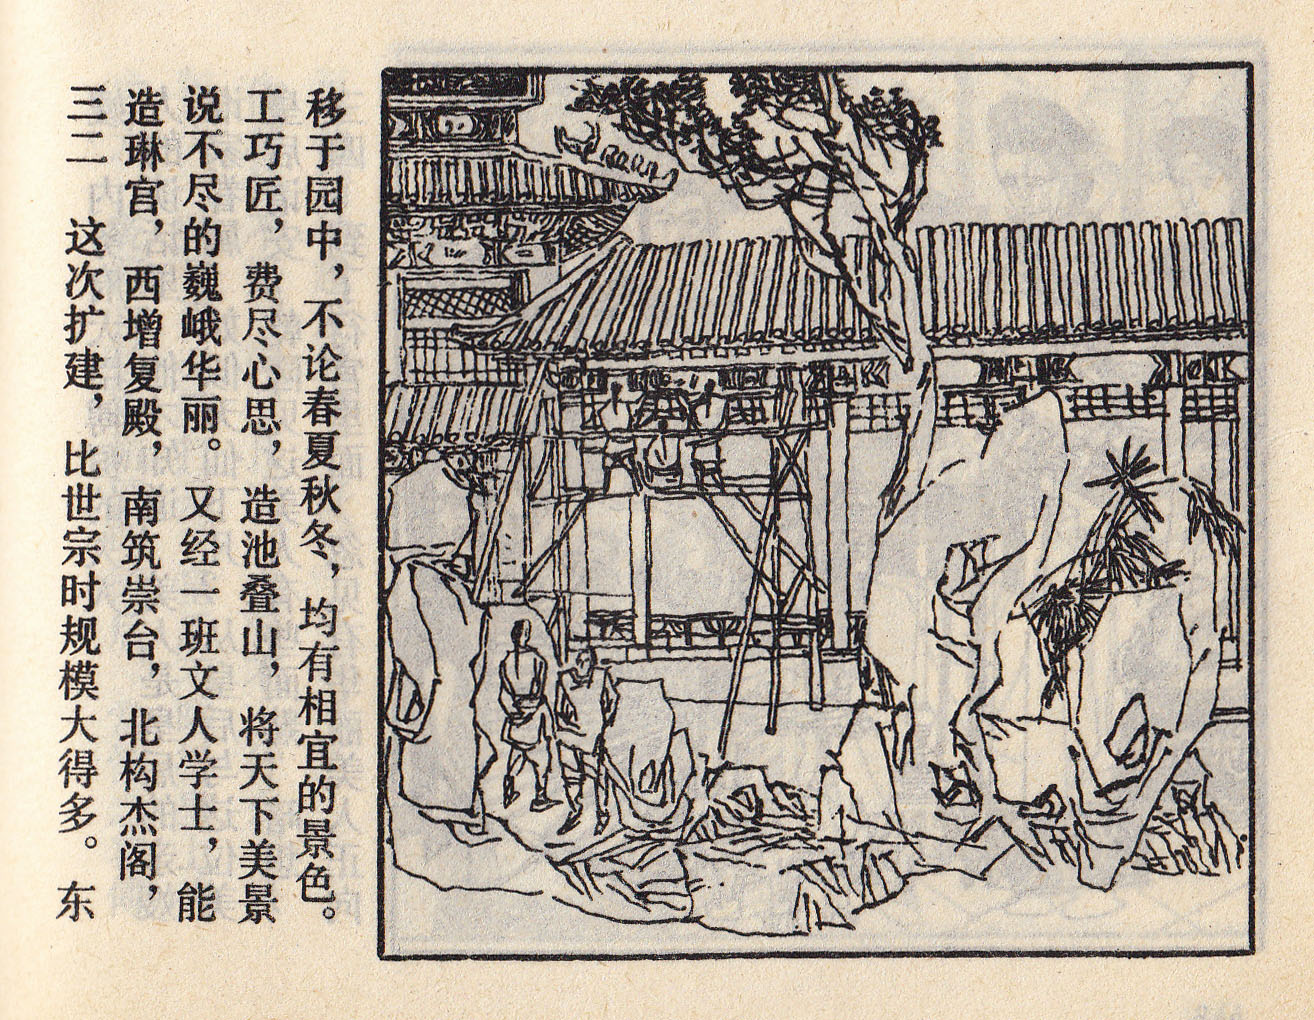 三二　这次扩建，比世宗时规模大得多。东
造琳官，西增复殿，南筑崇台，北构杰阁，
说不尽的巍峨华丽。又经一班文人学士，能
工巧匠，费尽心思，造池叠山，将天下美景
移于园中，不论春夏秋冬，均有相宜的景色。